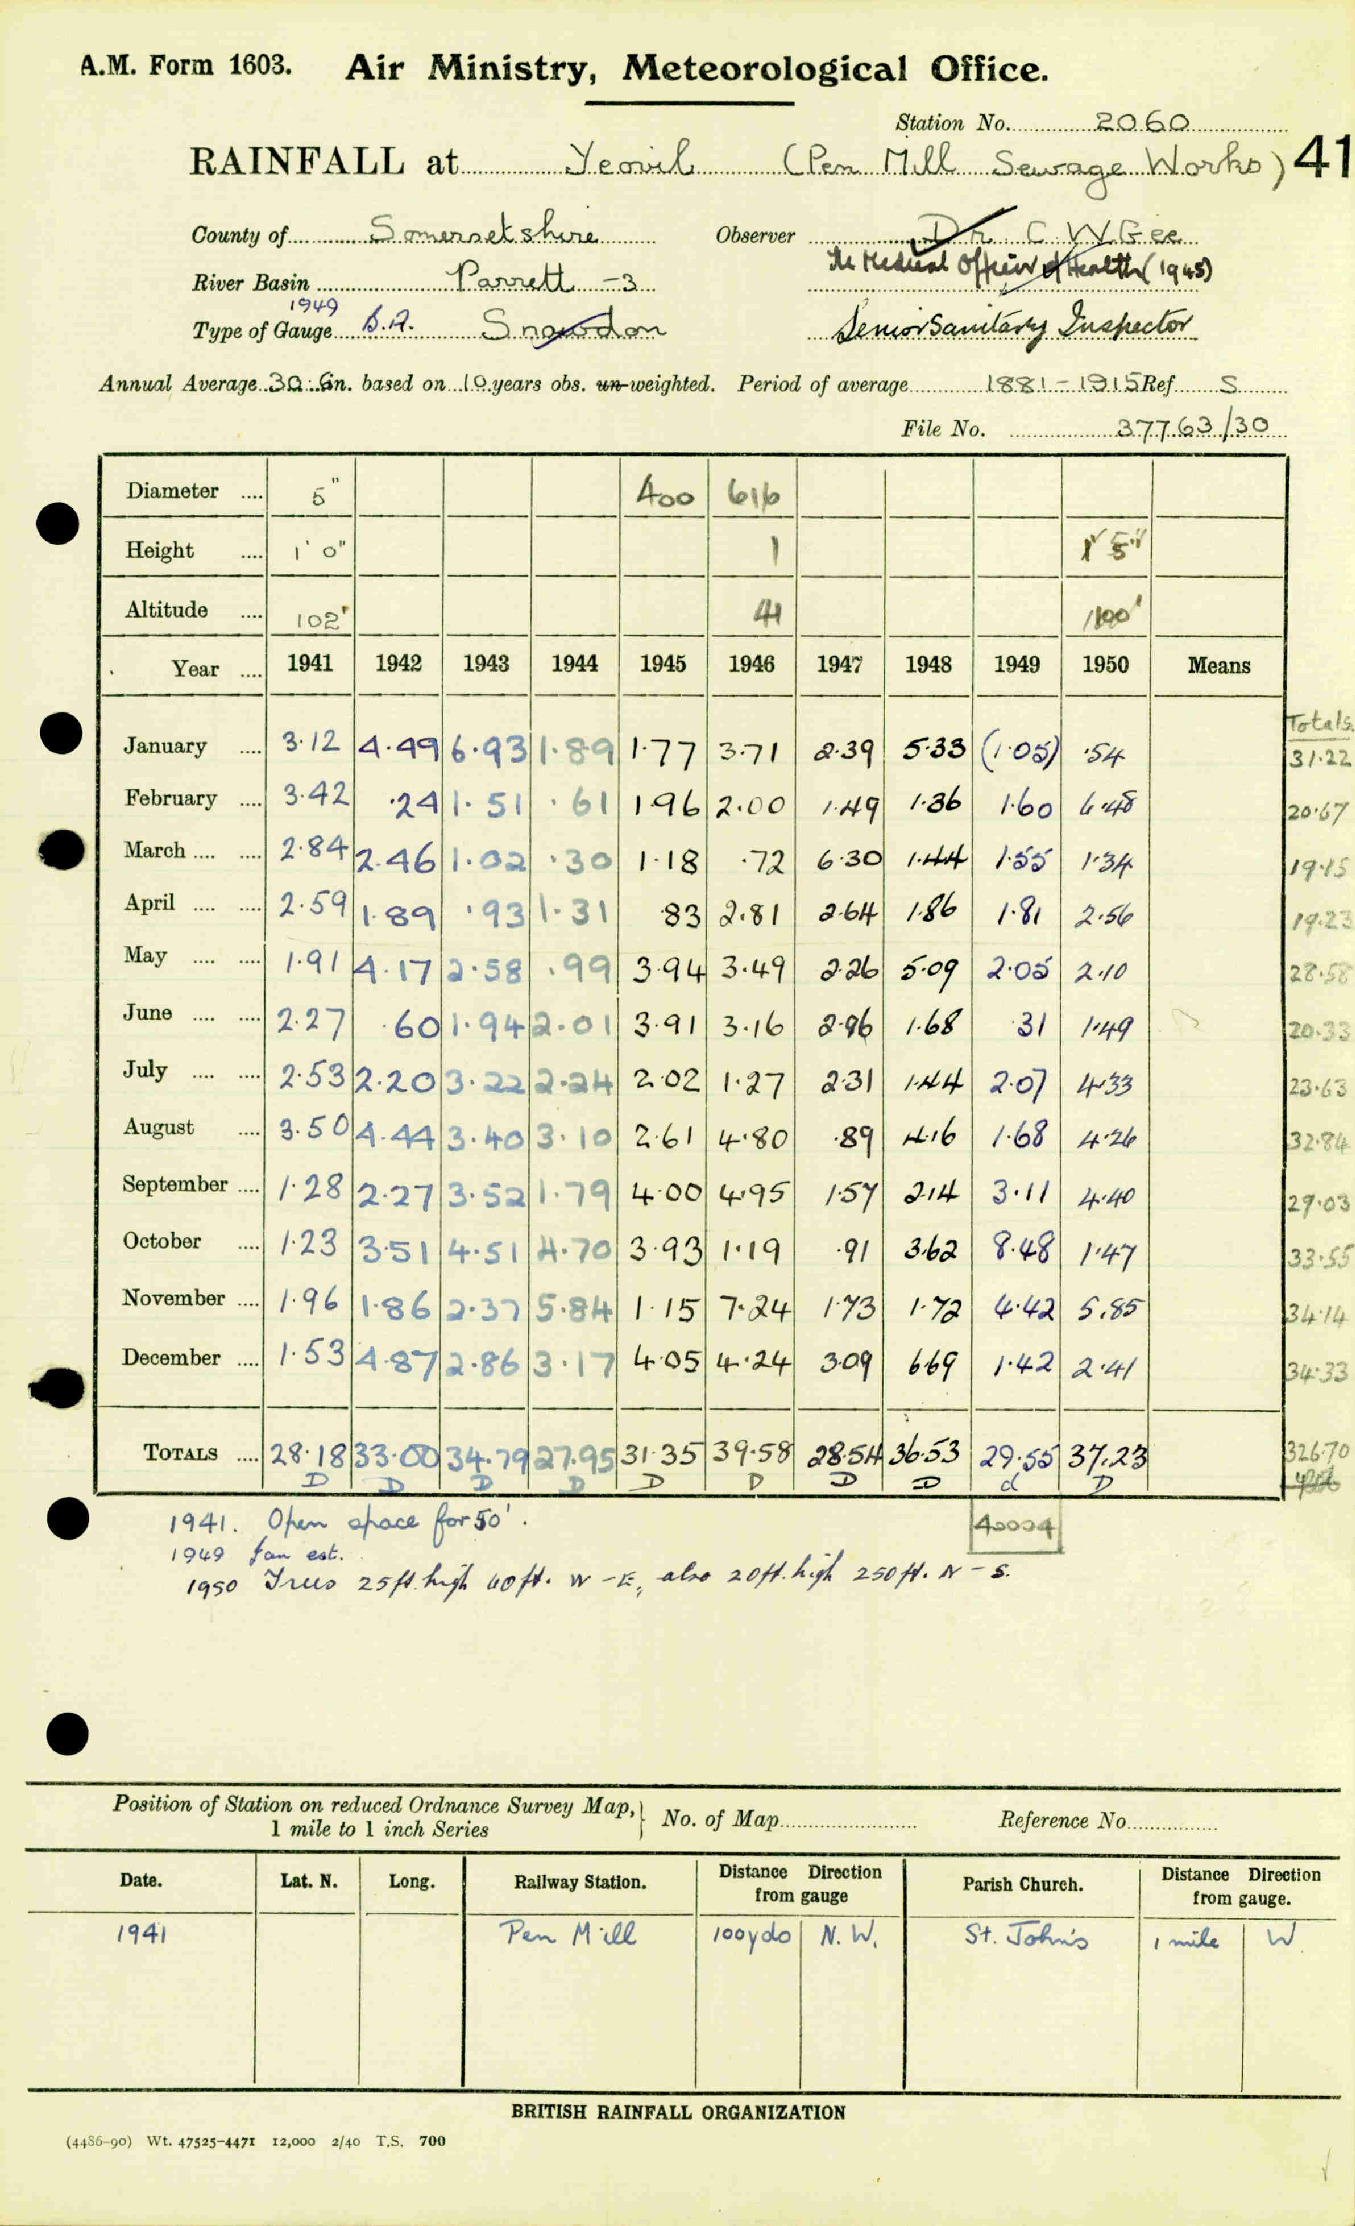 A.M. Form 1603. Air Ministry, Meteorological Office.
Station No. 2060
RAINFALL at Yeovil (Pen Mill Sewage Works) 41
County of Somersetshire Observer Dr. C. W. Gee
The Medical Officer of Health (1945)
River Basin Parrett -3
1949
Type of Gauge B.A. Snowdon Senior Sanitary Inspector
Annual Average 30.6 in. based on 10 years obs. un-weighted. Period of average 1881-1915 Ref S
File No. 37763/30
Diameter .... 5" 400 616
Height .... 1' 0" 1 1' 5"
Altitude .... 102' 41 100'
Year .... 1941 1942 1943 1944 1945 1946 1947 1948 1949 1950 Means
Totals
January .... 3.12 4.49 6.93 1.89 1.77 3.71 2.39 5.33 (1.05) .54 31.22
February .... 3.42 .24 1.51 .61 1.96 2.00 1.49 1.36 1.60 6.48 20.67
March .... .... 2.84 2.46 1.02 .30 1.18 .72 6.30 1.44 1.55 1.34 19.15
April .... .... 2.59 1.89 .93 1.31 .83 2.81 2.64 1.86 1.81 2.56 19.23
May .... .... 1.91 4.17 2.58 .99 3.94 3.49 2.26 5.09 2.05 2.10 28.58
June .... .... 2.27 .60 1.94 2.01 3.91 3.16 2.96 1.68 .31 1.49 20.33
July .... .... 2.53 2.20 3.22 2.24 2.02 1.27 2.31 1.44 2.07 4.33 23.63
August .... 3.50 4.44 3.40 3.10 2.61 4.80 .89 4.16 1.68 4.26 32.84
September .... 1.28 2.27 3.52 1.79 4.00 4.95 1.57 2.14 3.11 4.40 29.03
October .... 1.23 3.51 4.51 4.70 3.93 1.19 .91 3.62 8.48 1.47 33.55
November .... 1.96 1.86 2.37 5.84 1.15 7.24 1.73 1.72 4.42 5.85 34.14
December .... 1.53 4.87 2.86 3.17 4.05 4.24 3.09 6.69 1.42 2.41 34.33
TOTALS .... 28.18 33.00 34.79 27.95 31.35 39.58 28.54 36.53 29.55 37.23 326.70
D D D D D D D D d D
1941. Open space for 50'. 40004
1949 Jan est.
1950 Trees 25ft. high 40ft. W - E, also 20ft. high 250ft. N - S.
Position of Station on reduced Ordnance Survey Map, 1 mile to 1 inch Series } No. of Map Reference No.
Date. Lat. N. Long. Railway Station. Distance from gauge Direction Parish Church. Distance Direction from gauge.
1941 Pen Mill 100yds N.W. St. John's 1 mile W.
BRITISH RAINFALL ORGANIZATION
(4486-90) Wt. 47525-4471 12,000 2/40 T.S. 700